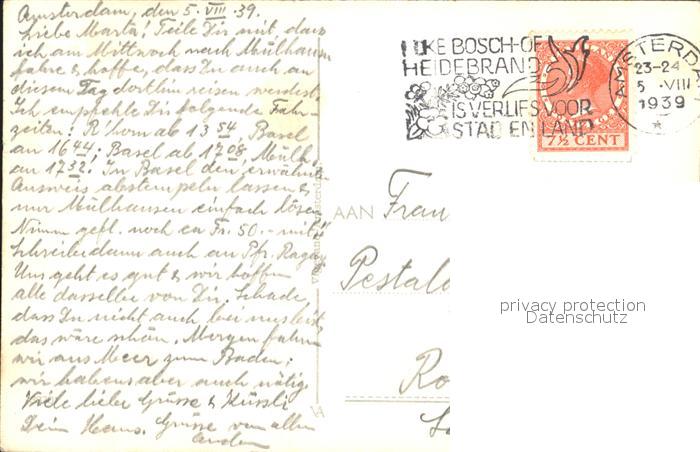 Amsterdam, den 5. VIII. 39.
Liebe Marta! Teile Dir mit, dass
ich am Mittwoch nach Mülhausen
fahre & hoffe, dass Du auch an
diesem Tag dorthin reisen werdest.
Ich empfehle Dir folgende Fahr-
zeiten: R'horn ab 13 54, Basel
an 16 44; Basel ab 17 08, Mülh.
an 17 32. In Basel den erwähnten
Ausweis abstempeln lassen &
nur Mülhausen einfach lösen
Nimm gefl. noch ca Fr. 50.- mit &
schreibe dann auch an Pfr. Ragaz
Uns geht es gut & wir hoffen
alle dasselbe von Dir. Schade,
dass Du nicht auch bei uns bist,
das wäre schön. Morgen fahren
wir ans Meer zum Baden;
wir haben's aber auch nötig.
Viele liebe Grüsse & Küssli
Dein Hans. Grüsse von allen
andern
ELKE BOSCH-OF
HEIDEBRAND
IS VERLIES VOOR
STAD EN LAND
7½ CENT
AMSTERD
23-24
5 VIII
1939
AAN Frau
Pestalo
Ro
privacy protection
Datenschutz
VA